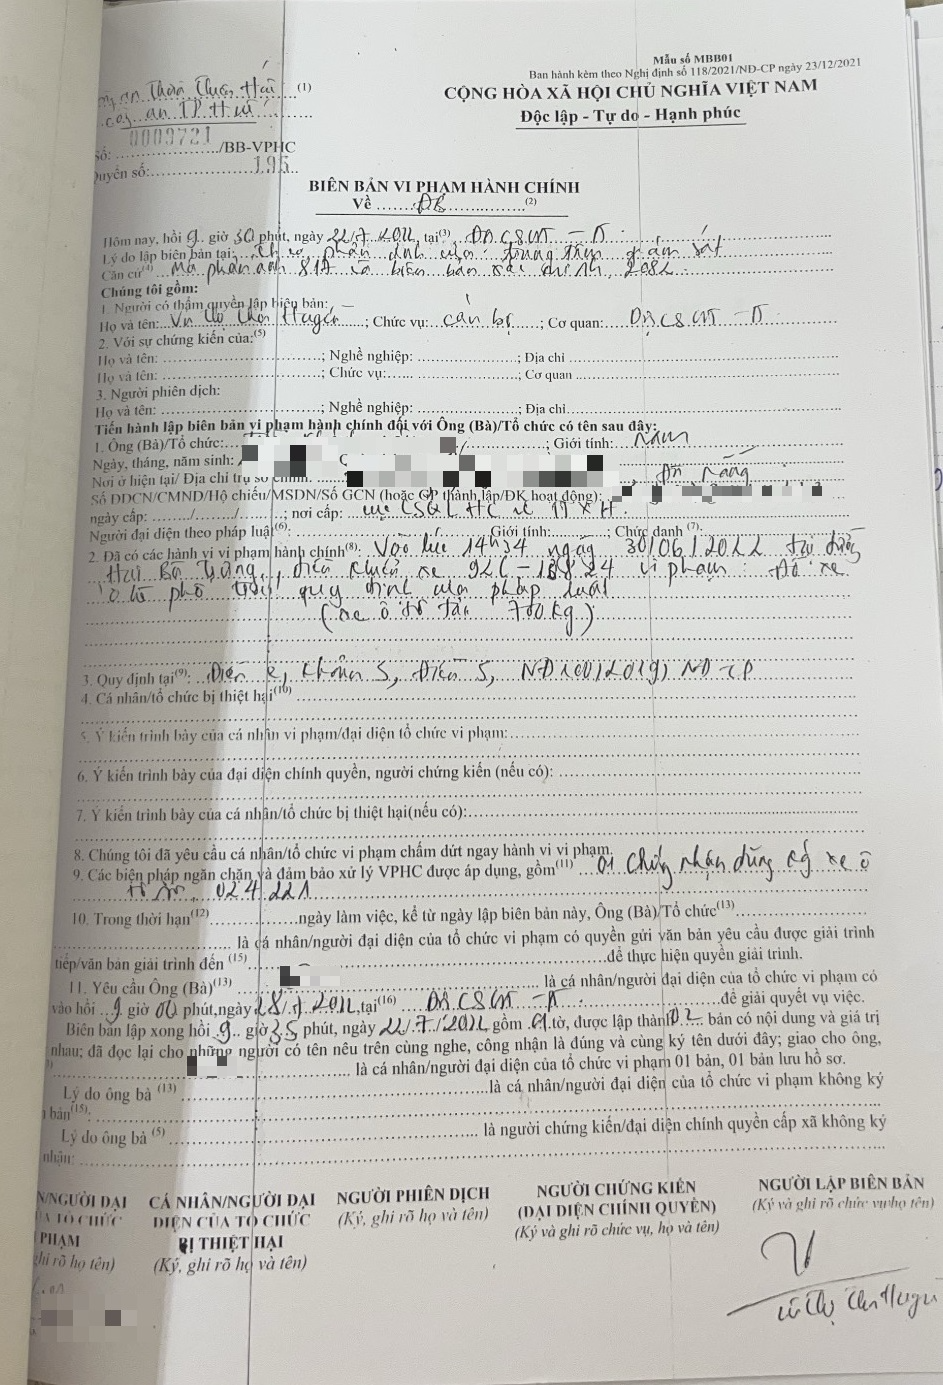 Mẫu số MBB01
Ban hành kèm theo Nghị định số 118/2021/NĐ-CP ngày 23/12/2021
an Thừa Thiên Huế (1)
CỘNG HÒA XÃ HỘI CHỦ NGHĨA VIỆT NAM
an TP Huế
Độc lập - Tự do - Hạnh phúc
số: 0009721/BB-VPHC
Quyển số: 195
BIÊN BẢN VI PHẠM HÀNH CHÍNH
Về ĐB (2)
Hôm nay, hồi 9 giờ 30 phút, ngày 22/7/2022, tại(3) Đ CSGT - TT
Lý do lập biên bản tại: giám sát
Căn cứ(4) Mã phản ánh 817 và biên bản xác minh 2082
Chúng tôi gồm:
1. Người có thẩm quyền lập biên bản:
Họ và tên: Huyền; Chức vụ: cán bộ; Cơ quan: Đ CSGT - TT
2. Với sự chứng kiến của:(5)
Họ và tên: ; Nghề nghiệp: ; Địa chỉ
Họ và tên: ; Chức vụ: ; Cơ quan
3. Người phiên dịch:
Họ và tên: ; Nghề nghiệp: ; Địa chỉ
Tiến hành lập biên bản vi phạm hành chính đối với Ông (Bà)/Tổ chức có tên sau đây:
1. Ông (Bà)/Tổ chức: ; Giới tính: Nam
Ngày, tháng, năm sinh:
Nơi ở hiện tại/ Địa chỉ trụ sở chính: Đà Nẵng
Số ĐDCN/CMND/Hộ chiếu/MSDN/Số GCN (hoặc GP thành lập/ĐK hoạt động):
ngày cấp: / / ; nơi cấp: cục CSQL HC về TTXH
Người đại diện theo pháp luật(6): Giới tính: ; Chức danh (7):
2. Đã có các hành vi vi phạm hành chính(8): Vào lúc 14h34 ngày 30/06/2022 tại đường
điều khiển xe 92C-16824 vi phạm: Đỗ xe
ở hè phố trái quy định của pháp luật
(xe ô tô tải 700kg)
3. Quy định tại(9): Điểm e, Khoản 3, Điều 5, NĐ 100/2019/NĐ-CP
4. Cá nhân/tổ chức bị thiệt hại(10)
5. Ý kiến trình bày của cá nhân vi phạm/đại diện tổ chức vi phạm:
6. Ý kiến trình bày của đại diện chính quyền, người chứng kiến (nếu có):
7. Ý kiến trình bày của cá nhân/tổ chức bị thiệt hại(nếu có):
8. Chúng tôi đã yêu cầu cá nhân/tổ chức vi phạm chấm dứt ngay hành vi vi phạm.
9. Các biện pháp ngăn chặn và đảm bảo xử lý VPHC được áp dụng, gồm(11) 01 Chứng nhận xe ô
tô 024221
10. Trong thời hạn(12) ngày làm việc, kể từ ngày lập biên bản này, Ông (Bà)/Tổ chức(13)
là cá nhân/người đại diện của tổ chức vi phạm có quyền gửi văn bản yêu cầu được giải trình
tiếp/văn bản giải trình đến (15) để thực hiện quyền giải trình.
11. Yêu cầu Ông (Bà)(13) là cá nhân/người đại diện của tổ chức vi phạm có
vào hồi 9 giờ 00 phút, ngày 28/7/2022, tại(16) Đ CSGT - TT để giải quyết vụ việc.
Biên bản lập xong hồi 9 giờ 35 phút, ngày 22/7/2022 gồm 01 tờ, được lập thành 02 bản có nội dung và giá trị
nhau; đã đọc lại cho những người có tên nêu trên cùng nghe, công nhận là đúng và cùng ký tên dưới đây; giao cho ông,
là cá nhân/người đại diện của tổ chức vi phạm 01 bản, 01 bản lưu hồ sơ.
Lý do ông bà (13) là cá nhân/người đại diện của tổ chức vi phạm không ký
bản(15):
Lý do ông bà (5) là người chứng kiến/đại diện chính quyền cấp xã không ký
nhận:
N/NGƯỜI ĐẠI CÁ NHÂN/NGƯỜI ĐẠI NGƯỜI PHIÊN DỊCH NGƯỜI CHỨNG KIẾN NGƯỜI LẬP BIÊN BẢN
TỔ CHỨC DIỆN CỦA TỔ CHỨC (Ký, ghi rõ họ và tên) (ĐẠI DIỆN CHÍNH QUYỀN) (Ký và ghi rõ chức vụ họ tên)
PHẠM BỊ THIỆT HẠI (Ký và ghi rõ chức vụ, họ và tên)
ghi rõ họ tên) (Ký, ghi rõ họ và tên)